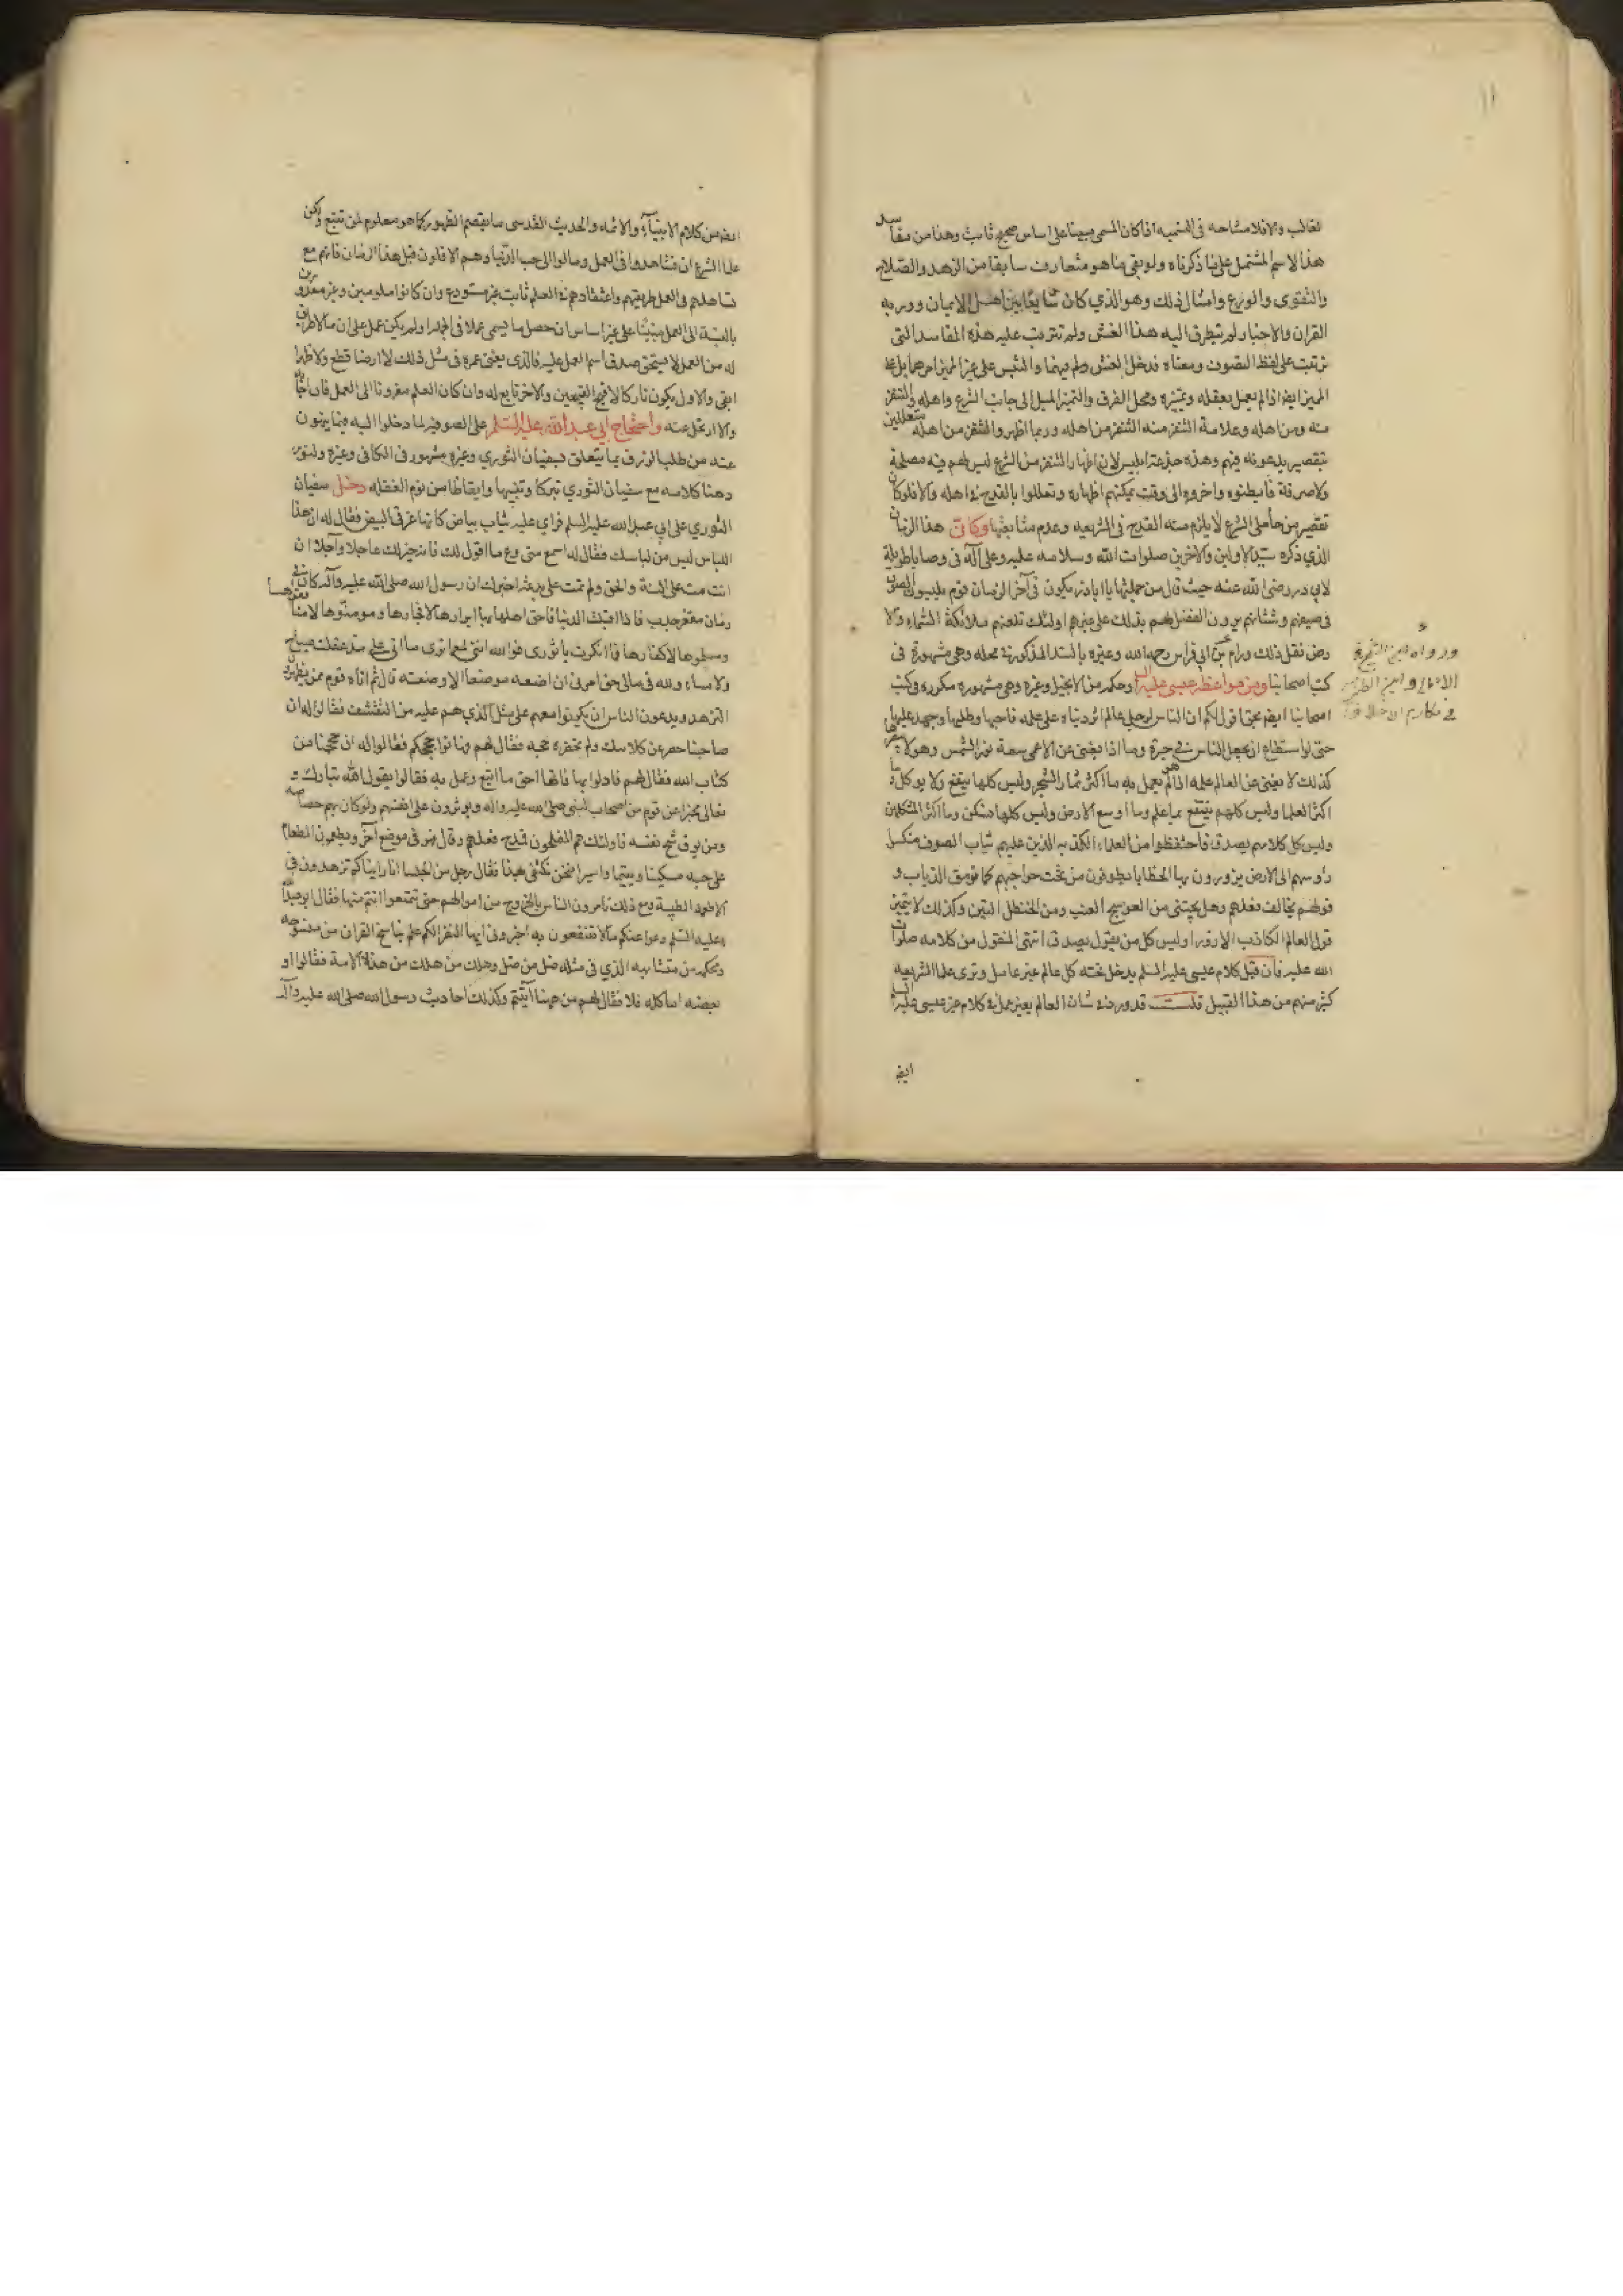 ١١
لغالب والا فلا مشاحه فى التسميه اذا كان المسمى مبينا على اساس صحيح ثابت وهذا من مفاسد
هذا الاسم المشتمل على ما ذكرناه ولو بقى ما هو متعارف سابقا من الزهد والصلاح
والتقوى والورع وامثال ذلك وهو الذي كان شايعا بين اهل الايمان وورد به
القران والاخبار لم يتطرق اليه هذا الغش ولم تترتب عليه هذه المفاسد التى
ترتبت على لفظ التصوف ومعناه فدخل الغش والتبس على غير المميز امرهما بل على
المميز ايضا اذا لم يعمل بعقله وتمييزه ومحل الفرق والتميز الميل الى جانب الشرع واهله والتنفر
منه ومن اهله وعلامة التنفر منه التنفر من اهله وربما اظهروا التنفر من اهله متعللين
بتقصير يدعونه فيهم وهذه خدعة ابليس لان اظهار التنفر من الشرع ليس لهم فيه مصلحة
ولا صرفة فابطنوه واخروه الى وقت يمكنهم اظهاره وتعللوا بالقدح فى اهله والا فلو كان
تقصير من حاملى الشرع لا يلزم منه القدح فى الشريعه وعدم متابعتها وكانّ هذا الزمان
الذي ذكره سيد الاولين والاخرين صلوات الله وسلامه عليه وعلى آله فى وصايا طويلة
لابي ذر رضى الله عنه حيث قال من جملتها يا ابا ذر يكون فى آخر الزمان قوم يلبسون الصوف
فى صيفهم وشتائهم يرون الفضل لهم بذلك على غيرهم اولئك تلعنهم ملائكة السماء والا
رض نقل ذلك ورام بن ابي فراس رحمه الله وغيره بالسند المذكور فى محله وهى مشهورة فى
كتب اصحابنا ومن مواعظ عيسى عليه السلم وحكمه من الانجيل وغيره وهى مشهوره مكرره فى كتب
اصحابنا ايضا بحق اقول لكم ان الناس لرجل عالم اثر دنياه على علمه فاحبها وطلبها وجهد عليها
حتى لو استطاع ان يجعل الناس فى حيرة وما اذا يغنى عن الاعمى سعة نور الشمس وهو لا يبصرها
كذلك لا يغنى عن العالم علمه اذا لم هو يعمل به ما اكثر ثمار الشجر وليس كلها ينفع ولا يوكل وما
اكثر العلما وليس كلهم ينتفع بما علم وما اوسع الارض وليس كلها تسكن وما اكثر المتكلمين
وليس كل كلامهم يصدق فاحتفظوا من العلماء الكذبه الذين عليهم ثياب الصوف منكسى
رؤسهم الى الارض يزورون بها الخطايا يطرفون من تحت حواجبهم كما ترمق الذياب و
قولهم يخالف فعلهم وهل يجتنى من العوسج العنب ومن الحنظل التين وكذلك لا يثمر
قول العالم الكاذب الا زورا وليس كل من يقول يصدق انتهى المنقول من كلامه صلوات
الله عليه فان قيل كلام عيسى عليه السلم يدخل تحته كل عالم غير عامل وترى علما الشريعه
كثير منهم من هذا القبيل قلت قد ورد فى شان العالم بغير عمل فى كلام غير عيسى عليه السلم
ايضا
ورواه ابن الشيخ فى
الامالى وابن الطبرسى
فى مكارم الاخلاق
ايضا من كلام الانبياء والائمه والحديث القدسى ما يقصم الظهور كما هو معلوم لمن تتبع ولكن
علما الشرع ان تساهلوا فى العمل ومالوا الى حب الدنيا وهم الاقلون قبل هذا الزمان فانهم مع
تساهلهم فى العمل طريقتهم واعتقادهم فى العلم ثابت غير مستودع وان كانوا ملومين وغير معذورين
له من العمل لا يستحق صدق اسم العمل عليه فالذى يفنى عمره فى مثل ذلك لا ارضا قطع ولا ظهرا
ابقى والاول يكون تاركا لاقبح القبيحين والاخر تابع له وان كان العلم مقرونا الى العمل فان اجابه
والا ارتحل عنه واحتجاج ابي عبد الله عليه السلم على الصوفيه لما دخلوا اليه فيما ينهون
عنه من طلب الرزق مما يتعلق بسفيان الثوري وغيره مشهور فى الكافى وغيره ولنورد
هنا كلامه مع سفيان الثوري تبركا وتنبيها وايقاظا من نوم الغفله دخل سفيان
الثوري على ابي عبد الله عليه السلم فراى عليه ثياب بياض كانها غرقى البيض فقال له ان هذا
اللباس ليس من لباسك فقال له اسمع منى وع ما اقول لك فانه خير لك عاجلا وآجلا ان
انت مت على السنة والحق ولم تمت على بدعة اخبرك ان رسول الله صلى الله عليه وآله كان فى
زمان مقفر جدب فاذا اقبلت الدنيا فاحق اهلها بها ابرارها لا فجارها ومومنوها لا منافقوها
ومسلموها لا كفارها فما انكرت يا ثورى فوالله اننى لمع ما ترى ما اتى على مذ عقلت صباح
ولا مساء ولله فى مالى حق امرنى ان اضعه موضعا الا وضعته قال ثم اتاه قوم ممن يظهرون
التزهد ويدعون الناس ان يكونوا معهم على مثل الذي هم عليه من التقشف فقالوا له ان
صاحبنا حصر عن كلامك ولم تحضره حججه فقال لهم فهاتوا حججكم فقالوا له ان حججنا من
كتاب الله فقال لهم فادلوا بها فانها احق ما اتبع وعمل به فقالوا يقول الله تبارك و
تعالى مخبرا عن قوم من اصحاب النبى صلى الله عليه واله ويوثرون على انفسهم ولو كان بهم خصاصه
ومن يوق شح نفسه فاولئك هم المفلحون فمدح فعلهم وقال فى موضع آخر ويطعمون الطعام
على حبه مسكينا ويتيما واسيرا فنحن نكتفى بهذا فقال رجل من الجلسا انا رايناكم تزهدون فى
الاطعمه الطيبة ومع ذلك تامرون الناس بالخروج من اموالهم حتى تمتعوا انتم منها فقال ابو عبد الله
عليه السلم دعوا عنكم ما لا تنتفعون به اخبرونى ايها النفر الكم علم بناسخ القران من منسوخه
ومحكمه من متشابهه الذي فى مثله ضل من ضل وهلك من هلك من هذه الامة فقالوا او
بعضه اما كله فلا فقال لهم من هيهنا اتيتم وكذلك احاديث رسول الله صلى الله عليه وآله